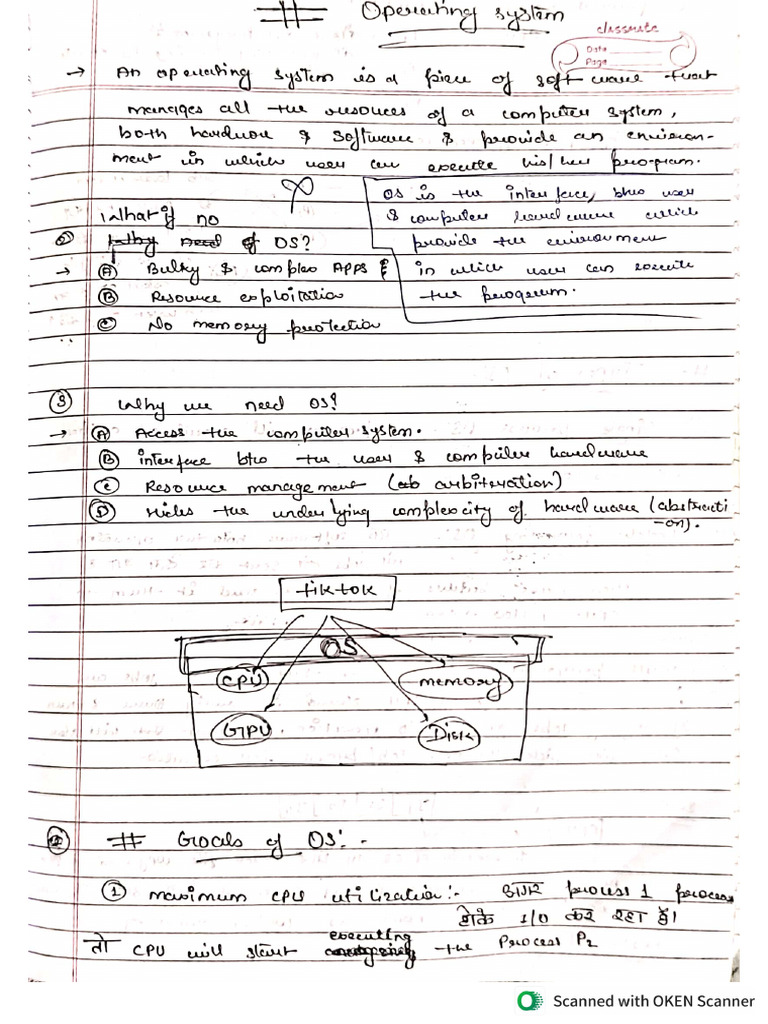 # Operating system
classmate
Date
Page
→ An operating system is a piece of software that
manages all the resouces of a computer system,
both hardware & software & provide an environ-
ment in which user can execute his/her program.
OS is the interface, btw user
& computer hardware which
provide the environment
in which user can execute
the program.
What if no
② Why Need of OS?
→ Ⓐ Bulky & complex APPS
Ⓑ Resource exploitation
Ⓒ No memory protection
③ Why we need OS?
→ Ⓐ Access the computer system.
Ⓑ interface btw the user & computer hardware
Ⓒ Resource management (ab arbiteration)
Ⓓ Hides the underlying complexcity of hardware (abstracti
-on).
tiktok
OS
CPU memory
GPU Disk
# Goals of OS:-
① maximum CPU utilization:- अगर process 1 process
होके I/O कर रहा हैं।
तो CPU will start executing the Process P2
Scanned with OKEN Scanner